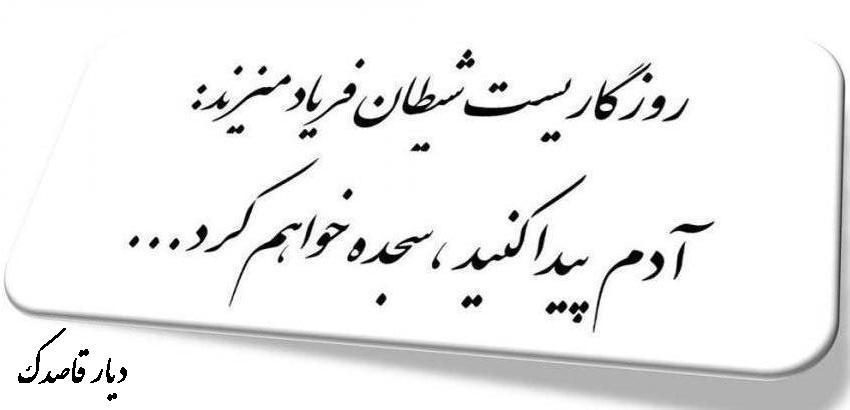 روزگاریست شیطان فریاد میزند:
آدم پیدا کنید، سجده خواهم کرد...
دیار قاصدک